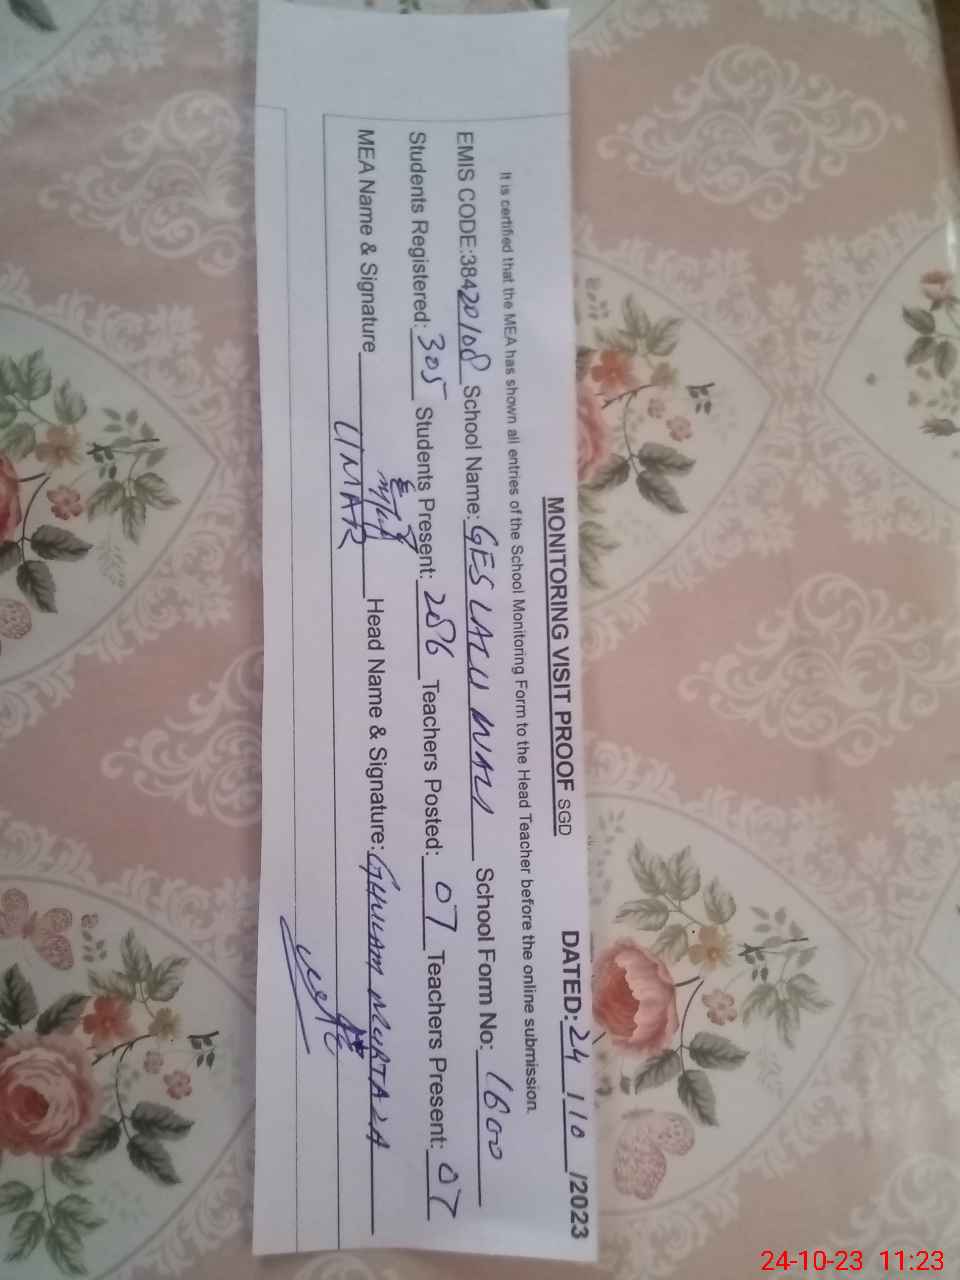 MONITORING VISIT PROOF SGD DATED: 24 / 10 /2023
It is certified that the MEA has shown all entries of the School Monitoring Form to the Head Teacher before the online submission.
EMIS CODE:38420108 School Name: GES LALU WALI School Form No: 1600
Students Registered: 305 Students Present: 286 Teachers Posted: 07 Teachers Present: 07
MEA Name & Signature UMAR Head Name & Signature: GHULAM MURTAZA
24-10-23 11:23